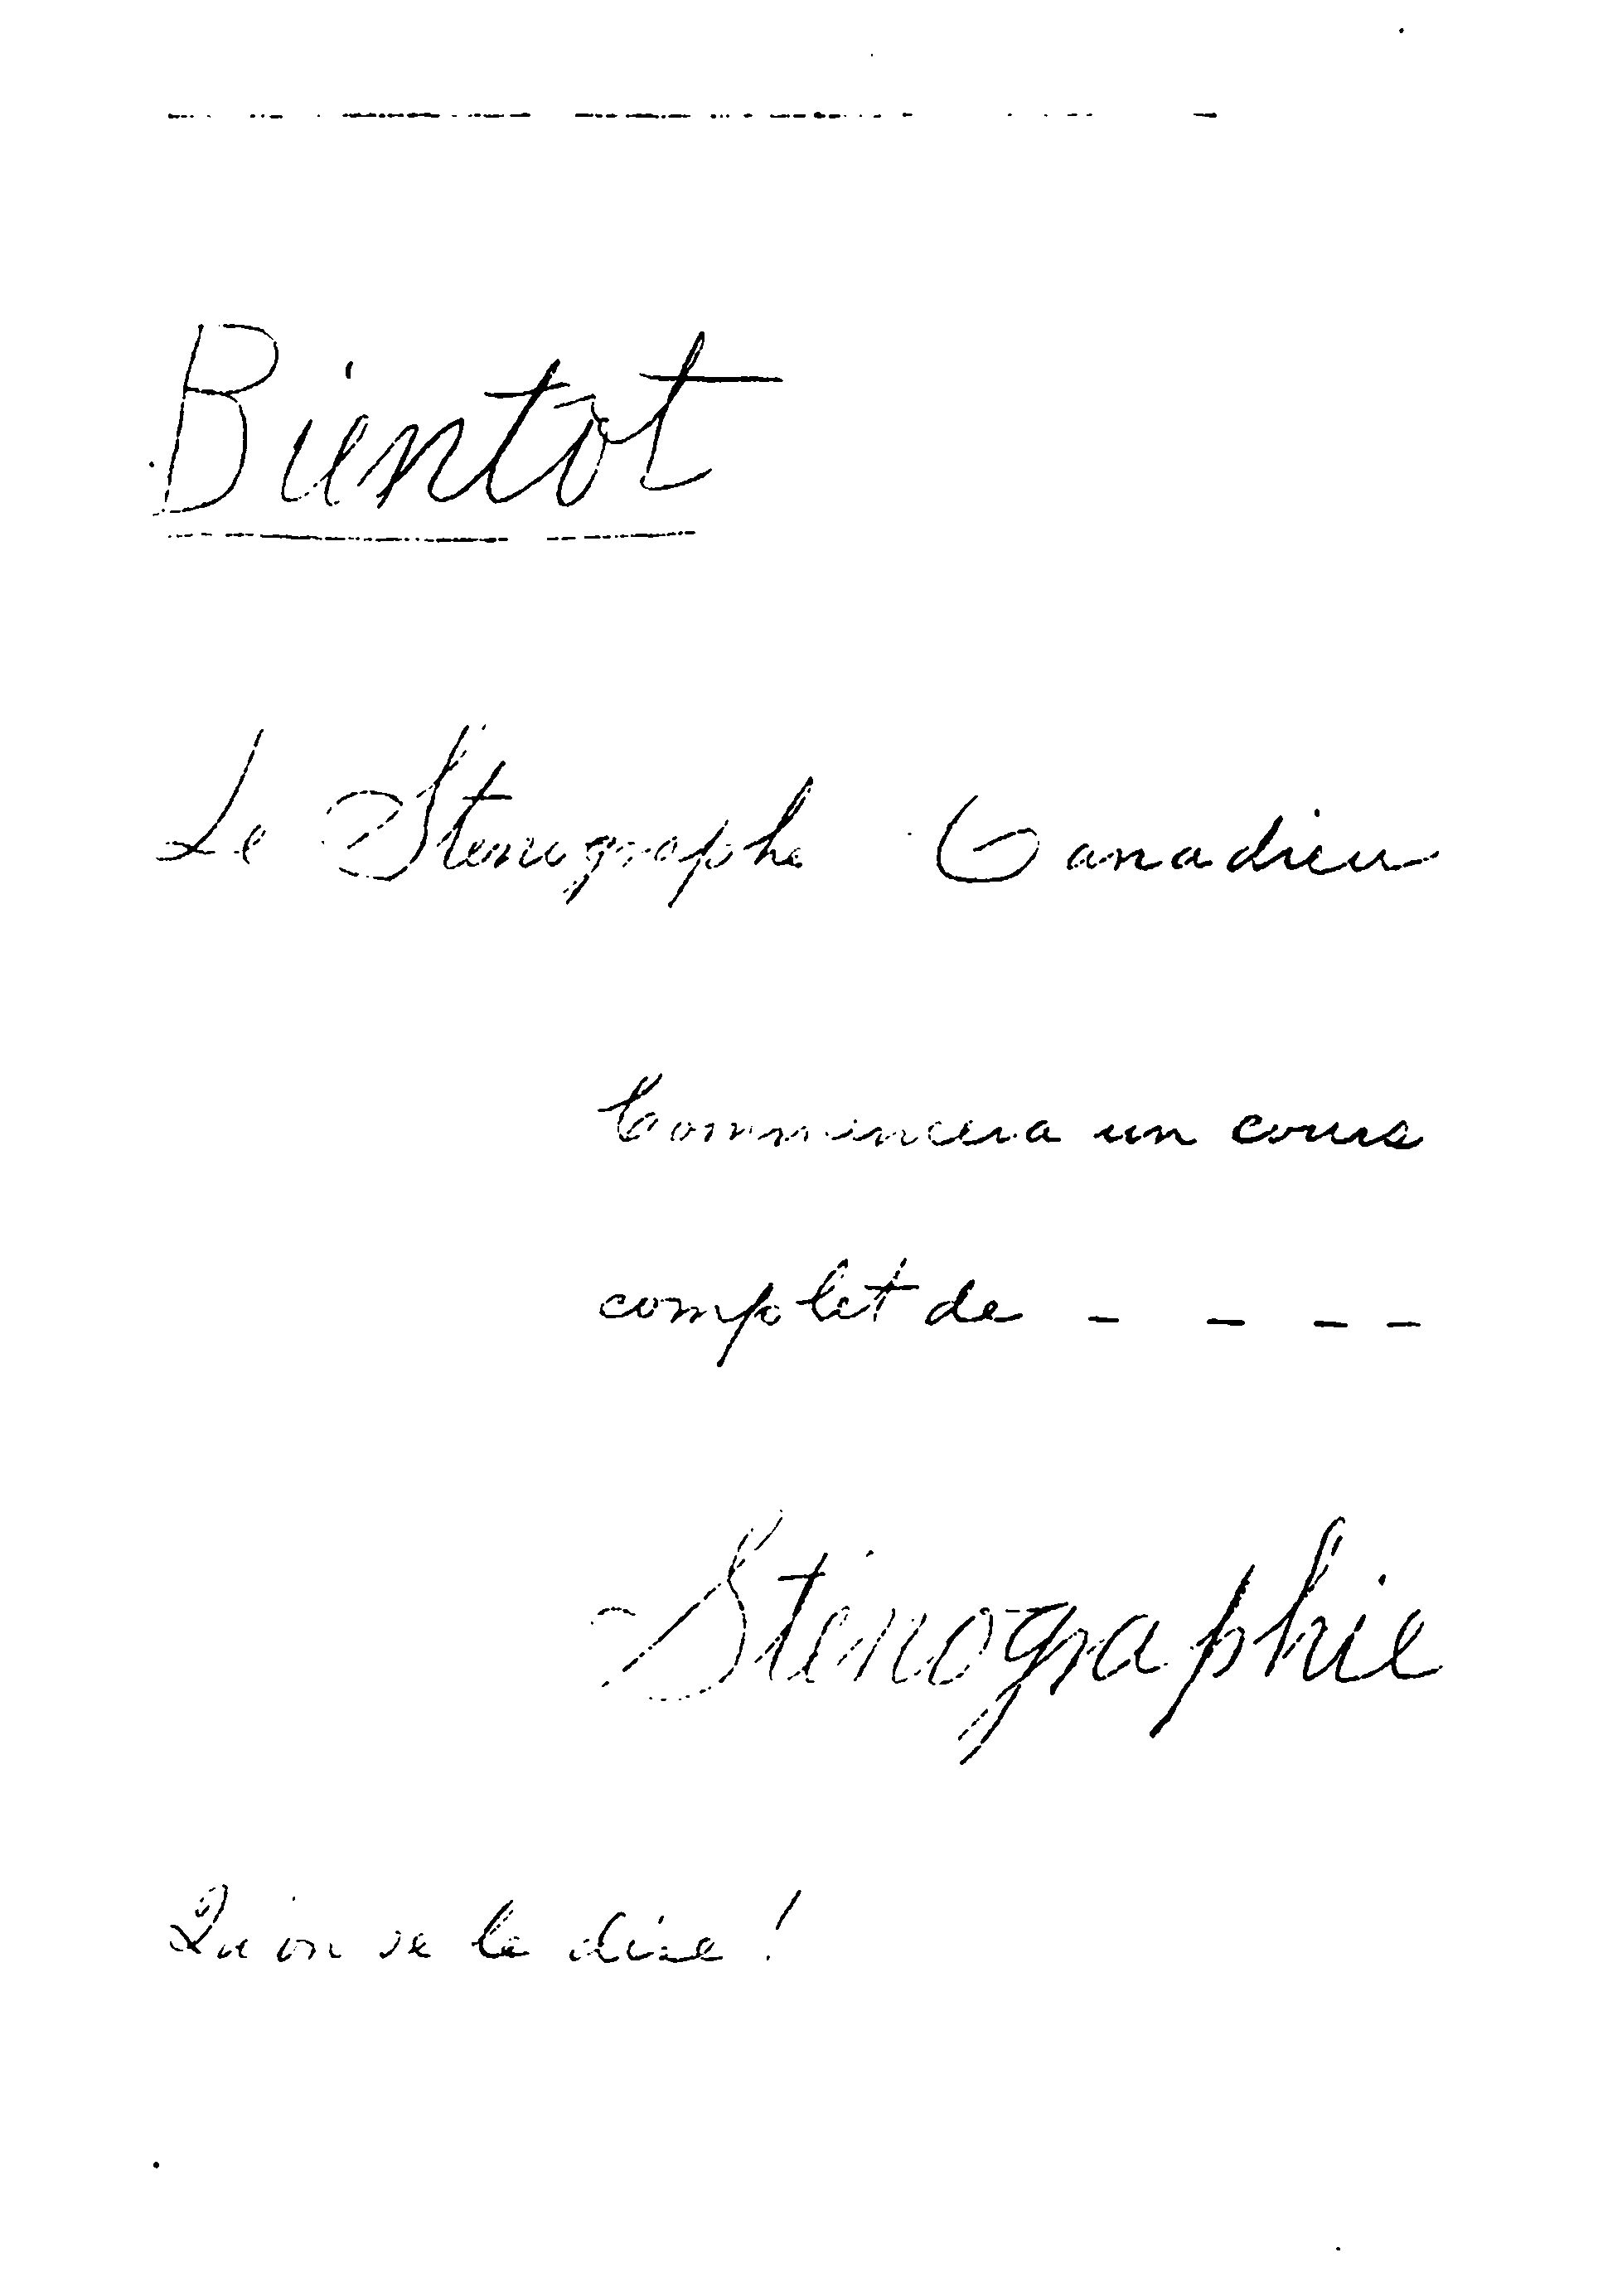 Bientôt
Le Stenographe Canadien
Commencera un cours
complet de - - - -
Sténographie
Qu'on se le dise !